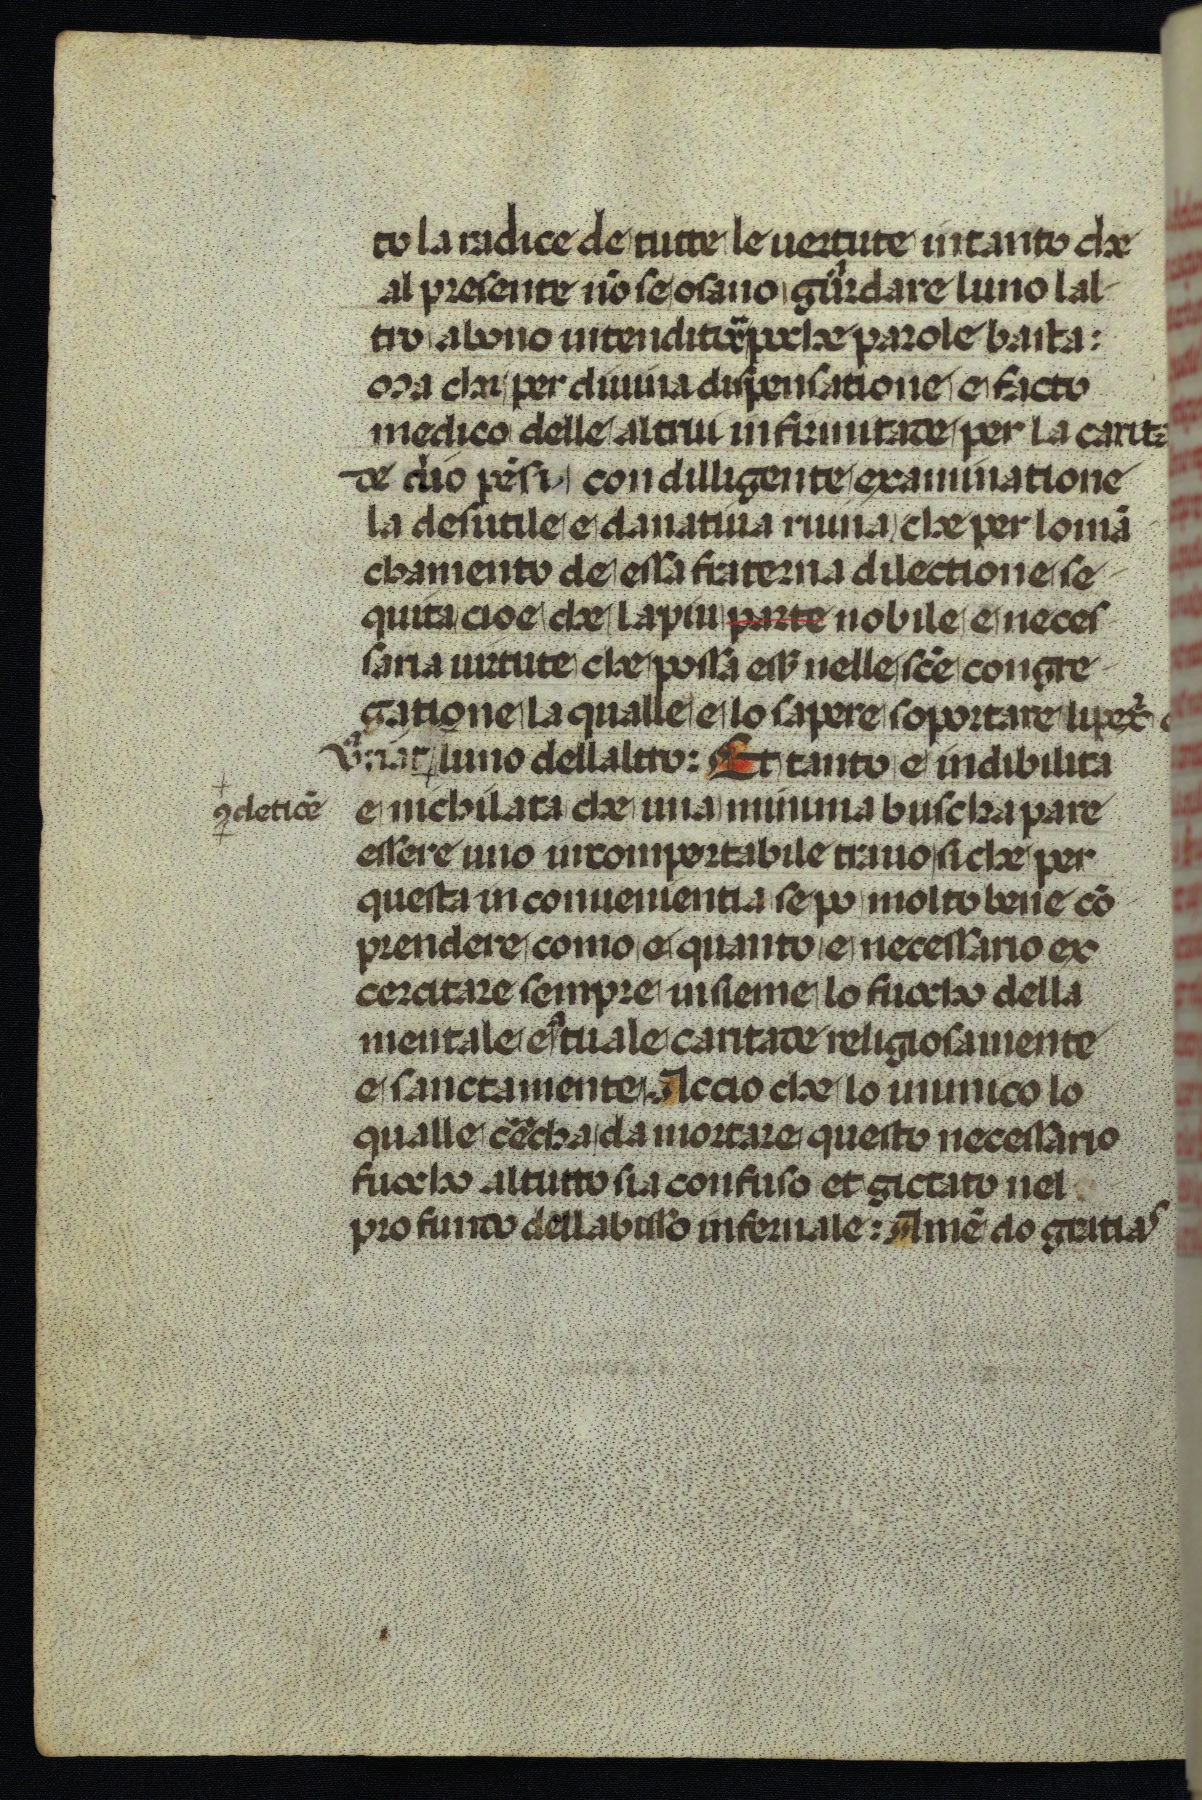 to la radice de tutte le uertute intanto che
al presente nō se osano guardare luno lal
tro a bono intenditore poche parole basta:
ora chi per diuina dispensatione e facto
medico delle altrui infirmitade per la carita
de dio pēsi con dilligente examinatione
la desutile e danatiua ruina che per lo mā
chamento de essa fraterna dilectione se
quita cioe che la piu parte nobile e neces
saria uirtute che possa ess nelle scē congre
gatione la qualle e lo sapere soportare li
luno dellaltro: Et tanto e indibilita
e nichilata che una minima buscha pare
essere uno incomportabile trauo si che per
questa inconuenientia se po molto bene cō
prendere como e quanto e necessario ex
cercitare sempre insieme lo fuocho della
mentale e tuale caritade religiosamente
e sanctamente Accio che lo inimico lo
qualle cercha da mortare questo necessario
fuocho al tutto sia confuso et gictato nel
profundo dellabisso infernale: Amē do gratias